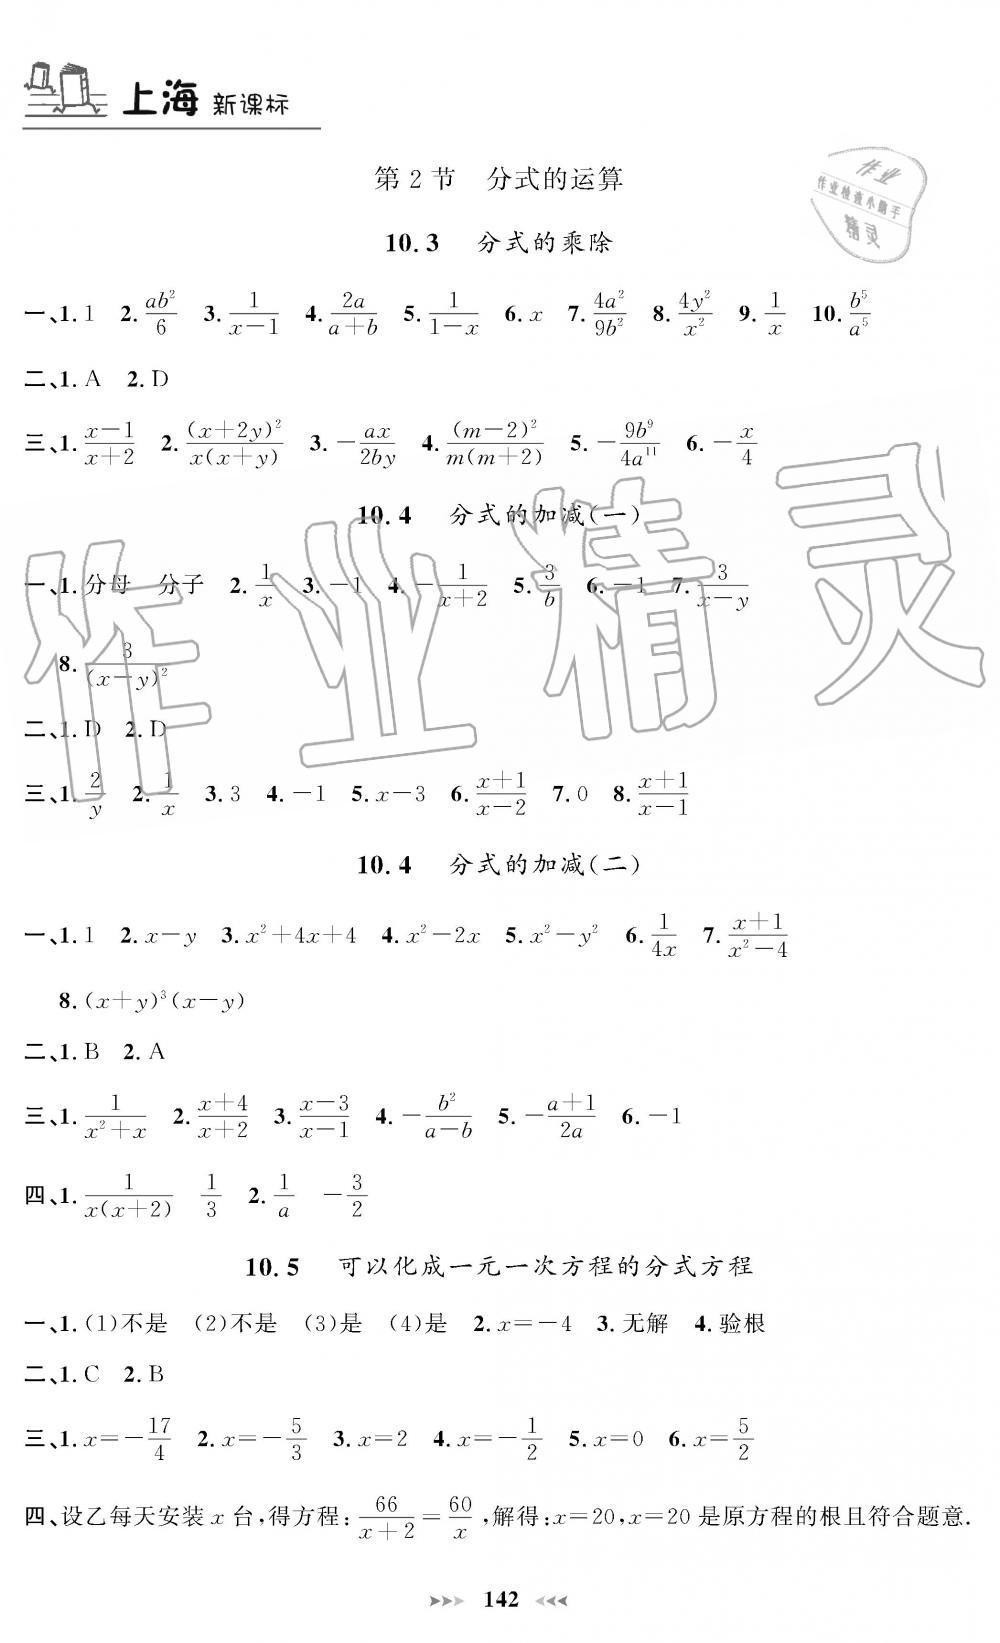 上海 新课标
作业
作业检查小助手
精灵
第2节 分式的运算
10.3 分式的乘除
一、1. 1 2. ab²/6 3. 1/(x−1) 4. 2a/(a+b) 5. 1/(1−x) 6. x 7. 4a²/9b² 8. 4y²/x² 9. 1/x 10. b⁵/a⁵
二、1. A 2. D
三、1. (x−1)/(x+2) 2. (x+2y)²/x(x+y) 3. −ax/2by 4. (m−2)²/m(m+2) 5. −9b⁹/4a¹¹ 6. −x/4
10.4 分式的加减(一)
一、1. 分母 分子 2. 1/x 3. −1 4. −1/(x+2) 5. 3/b 6. −1 7. 3/(x−y)
8. 3/(x−y)²
二、1. D 2. D
三、1. 2/y 2. 1/x 3. 3 4. −1 5. x−3 6. (x+1)/(x−2) 7. 0 8. (x+1)/(x−1)
10.4 分式的加减(二)
一、1. 1 2. x−y 3. x²+4x+4 4. x²−2x 5. x²−y² 6. 1/4x 7. (x+1)/(x²−4)
8. (x+y)³(x−y)
二、1. B 2. A
三、1. 1/(x²+x) 2. (x+4)/(x+2) 3. (x−3)/(x−1) 4. −b²/(a−b) 5. −(a+1)/2a 6. −1
四、1. 1/x(x+2) 1/3 2. 1/a −3/2
10.5 可以化成一元一次方程的分式方程
一、1. (1)不是 (2)不是 (3)是 (4)是 2. x=−4 3. 无解 4. 验根
二、1. C 2. B
三、1. x=−17/4 2. x=−5/3 3. x=2 4. x=−1/2 5. x=0 6. x=5/2
四、设乙每天安装 x 台,得方程: 66/(x+2)=60/x ,解得:x=20,x=20 是原方程的根且符合题意.
142
作业精灵